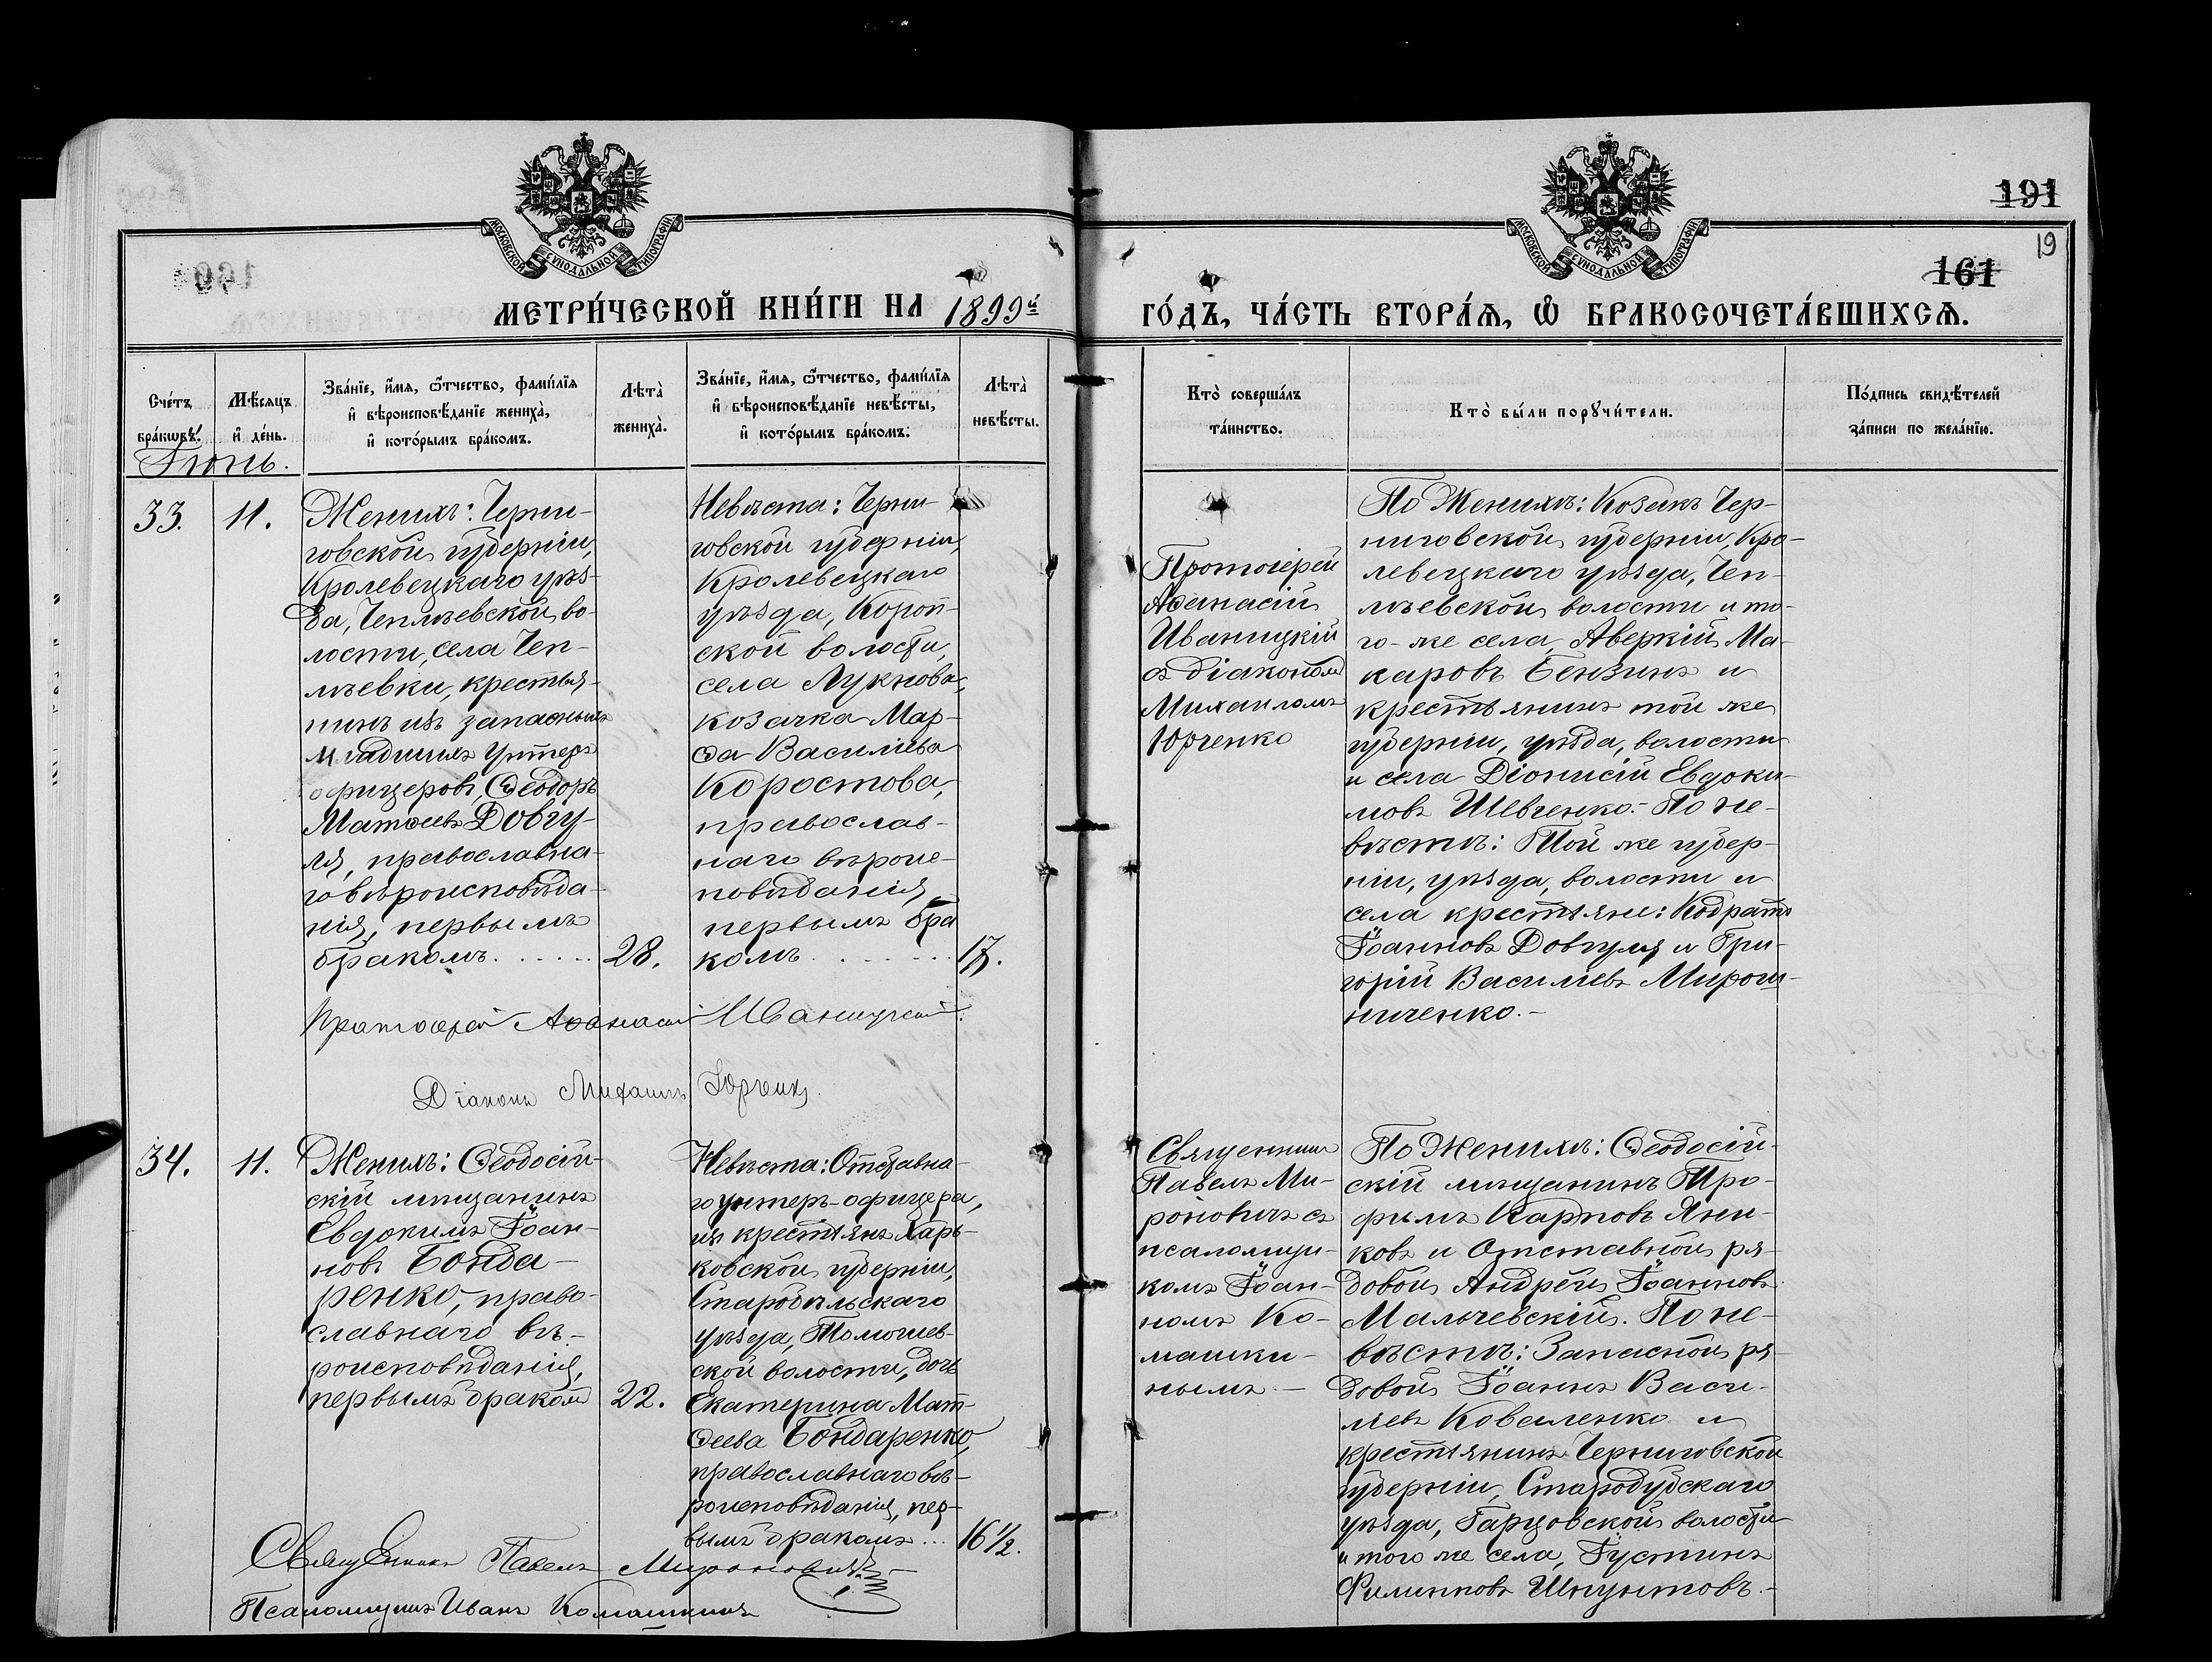 191
19
161
МОСКОВСКОЙ СѴНОДАЛЬНОЙ ТИПОГРАФІИ
МОСКОВСКОЙ СѴНОДАЛЬНОЙ ТИПОГРАФІИ
МЕТРИ́ЧЕСКОЙ КНИ́ГИ НА 1899й
ГО́ДЪ, ЧА́СТЬ ВТОРА́Ѧ, Ѡ҆ БРАКОСОЧЕТА́ВШИХСѦ.
Сче́тъ
бра́кѡвъ.
Мѣ́сяцъ
и҆ де́нь.
Зва́нїе, и҆́мѧ, ѻ҆́тчество, фами́лїѧ
и҆ вѣроисповѣ́данїе жениха̀,
и҆ кото́рымъ бра́комъ.
Лѣта̀
жениха̀.
Зва́нїе, и҆́мѧ, ѻ҆́тчество, фами́лїѧ
и҆ вѣроисповѣ́данїе невѣ́сты,
и҆ кото́рымъ бра́комъ.
Лѣта̀
невѣ́сты.
Кто̀ соверша́лъ
та́инство.
Кто̀ бы́ли порꙋчи́тели.
По́дпись свидѣ́телей
за́писи по жела́нїю.
Іюнь.
33.
11.
Женихъ: Черни-
говской губерніи,
Кролевецкаго уѣз-
да, Чеплѣевской во-
лости, села Чеп-
лѣевки, крестья-
нинъ изъ запасныхъ
младшихъ унтеръ
офицеровъ, Ѳеодоръ
Матѳеевъ Довгу-
ля, православна-
го вѣроисповѣда-
нія, первымъ
бракомъ. . . . .
28.
Невѣста: Черни-
говской губерніи,
Кролевецкаго
уѣзда, Короп-
ской волости,
села Лукнова,
козачка Мар-
ѳа Василіева
Коростова,
православ-
наго вѣроис-
повѣданія,
первымъ бра
комъ. . . . . . .
17.
Протоіерей
Аѳанасій
Иваницкій
съ діакономъ
Михаиломъ
Юрченко
По Женихѣ: Козакъ Чер-
ниговской губерніи, Кро-
левецкаго уѣзда, Чеп-
лѣевской волости и то-
го-же села, Аверкій Ма-
каровъ Бензинъ и
крестьянинъ той же
губерніи, уѣзда, волости
и села Діонисій Евдоки-
мовъ Шевченко.- По не-
вѣстѣ: Той же губер-
ніи, уѣзда, волости и
села крестьяне: Кодратъ
Іоанновъ Довгуля и Гри-
горій Василіевъ Мирош-
ниченко.-
Протоіерей Аѳанасій Иваницкій.
Діаконъ Михаилъ Юрченко
34.
11.
Женихъ: Ѳеодосій-
скій мѣщанинъ
Евдокимъ Іоан-
новъ Бонда-
ренко, право-
славнаго вѣ-
роисповѣданія,
первымъ бракомъ
22.
Невѣста: Отставна-
го унтеръ-офицера,
изъ крестьянъ Харь-
ковской губерніи,
Старобѣльскаго
уѣзда,
ской волости, дочь
Екатерина Мат-
ѳеева Бондаренко,
православнаго вѣ-
роисповѣданія, пер-
вымъ бракомъ...
16 1/2.
Священникъ
Павелъ Ми-
роновичъ съ
псаломщи-
комъ Іоан-
номъ Ко-
машки-
нымъ.-
По Женихѣ: Ѳеодосій-
скій мѣщанинъ Тро-
фимъ Карповъ Яни-
ковъ и Отставной ря-
довой Андрей Іоанновъ
Мальчевскій. По не-
вѣстѣ: Запасной ря-
довой Іоаннъ Васи-
ліевъ Коваленко и
крестьянинъ Черниговской
губерніи, Стародубскаго
уѣзда, Гарцовской волости
и того же села, Густинъ
Филипповъ Шпунтовъ.-
Священникъ Павелъ Мироновичъ
Псаломщикъ Иванъ Комашкинъ